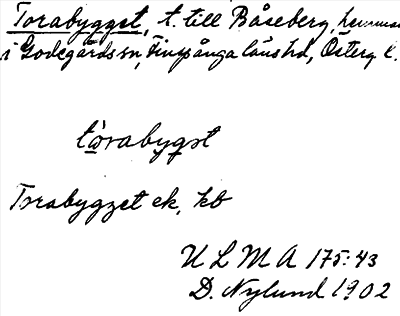 Torabygget, t. till Båseberg, hemman
i Godegårds sn, Finspånga läns hd, Österg l.
tòrabygət
Torabygget ek, kb
U L M A 175:43
D. Nylund 1902